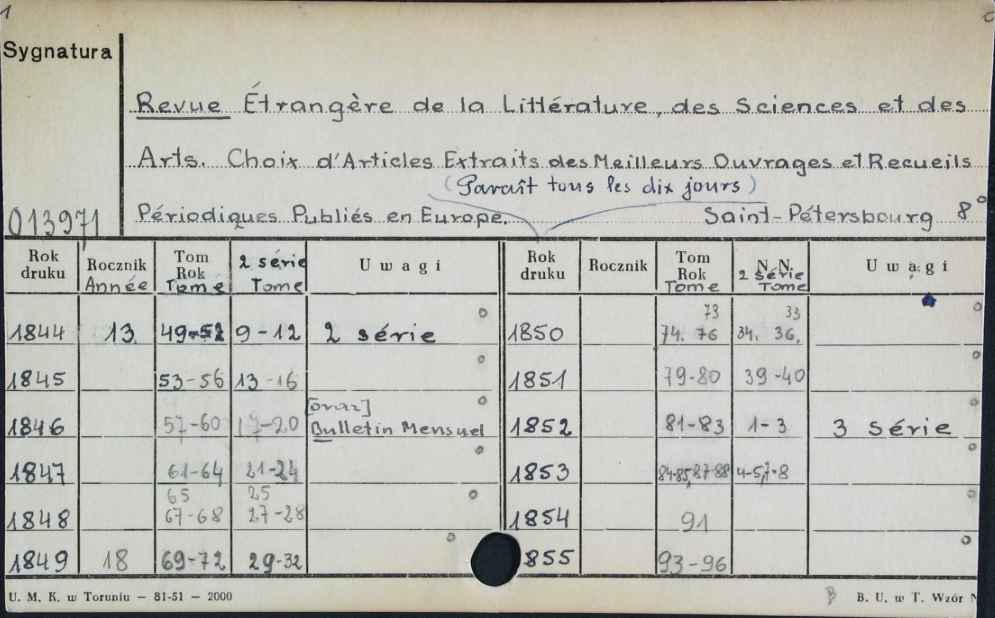 1
Sygnatura
Revue Étrangère de la Littérature, des Sciences et des
Arts. Choix d'Articles Extraits des Meilleurs Ouvrages et Recueils
(Paraît tous les dix jours)
013971 Périodiques Publiés en Europe. Saint-Pétersbourg 8°
Rok druku Rocznik Année Tom Rok Tome 2 série Tome Uwagi Rok druku Rocznik Tom Rok Tome N.N. 2 série Tome Uwagi
73 33
1844 13. 49-52 9-12 2 série 1850 74. 76 34. 36.
1845 53-56 13-16 1851 79-80 39-40
[oraz]
1846 57-60 17-20 Bulletin Mensuel 1852 81-83 1-3 3 série
1847 61-64 21-24 1853 84-85, 87-88 4-5, 7-8
65 25
1848 67-68 27-28 1854 91
1849 18 69-72 29-32 855 93-96
U. M. K. w Toruniu — 81-51 — 2000 B. U. w T. Wzór